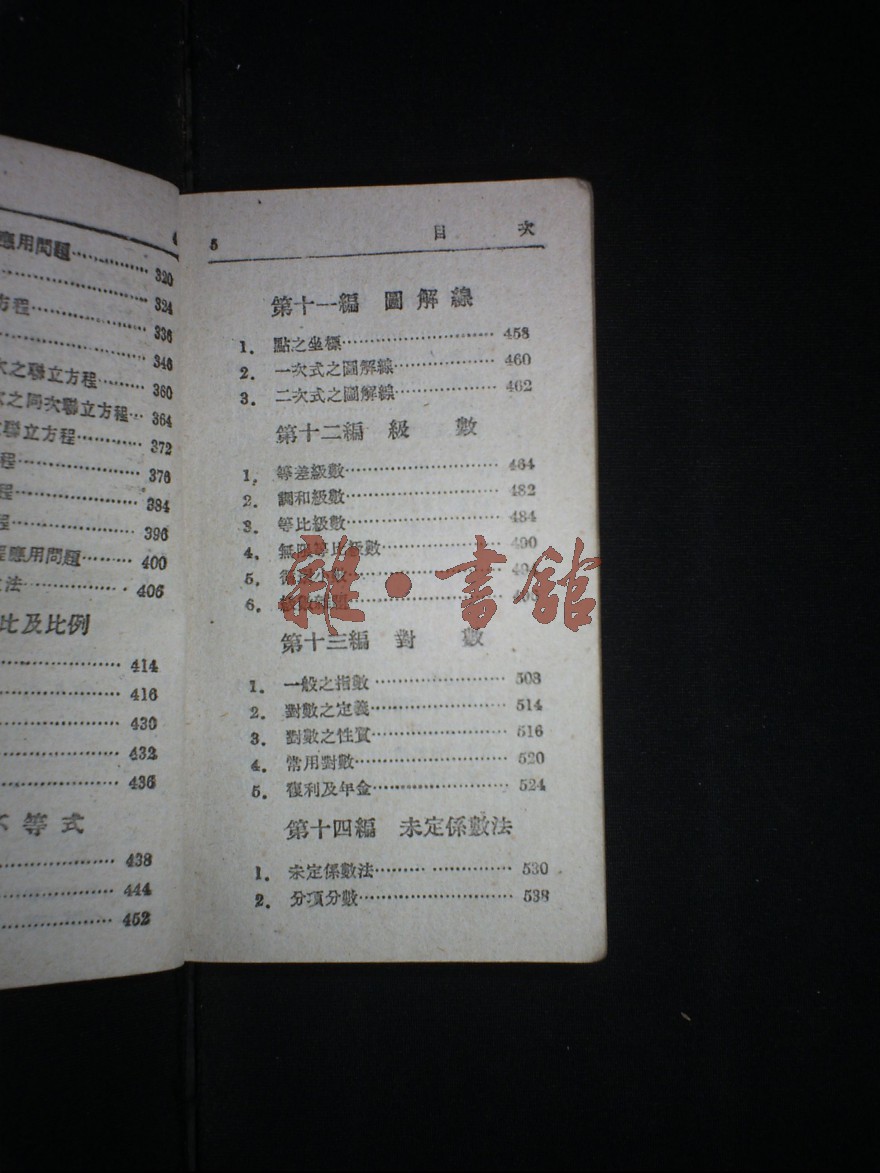 應用問題⋯⋯ 320
⋯⋯ 324
方程⋯⋯ 336
⋯⋯ 346
次之聯立方程⋯⋯ 360
之同次聯立方程⋯ 364
聯立方程⋯⋯ 372
程⋯⋯ 376
程⋯⋯ 384
程⋯⋯ 396
程應用問題⋯⋯ 400
法⋯⋯ 406
比及比例
⋯⋯ 414
⋯⋯ 416
⋯⋯ 430
⋯⋯ 432
⋯⋯ 436
不等式
⋯⋯ 438
⋯⋯ 444
⋯⋯ 452
5 目 次
第十一編 圖解線
1. 點之坐標⋯⋯ 458
2. 一次式之圖解線⋯⋯ 460
3. 二次式之圖解線⋯⋯ 462
第十二編 級 數
1. 等差級數⋯⋯ 464
2. 調和級數⋯⋯ 482
3. 等比級數⋯⋯ 484
4. 無限等比級數⋯⋯ 490
5. 循環小數⋯⋯
6. 級數雜題⋯⋯
雜·書館
第十三編 對 數
1. 一般之指數⋯⋯ 508
2. 對數之定義⋯⋯ 514
3. 對數之性質⋯⋯ 516
4. 常用對數⋯⋯ 520
5. 複利及年金⋯⋯ 524
第十四編 未定係數法
1. 未定係數法⋯⋯ 530
2. 分項分數⋯⋯ 538